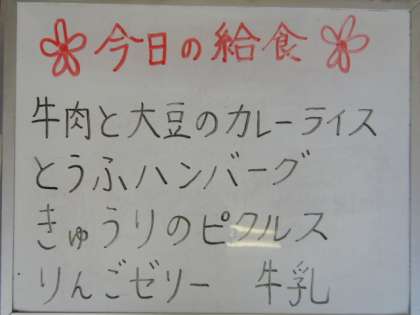 今日の給食
牛肉と大豆のカレーライス
とうふハンバーグ
きゅうりのピクルス
りんごゼリー 牛乳